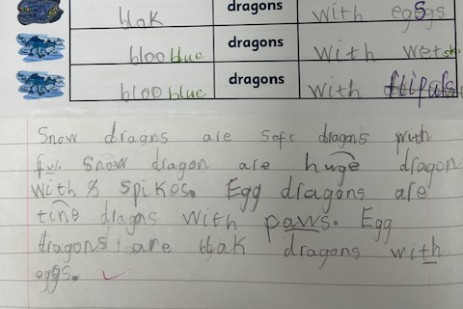 blak dragons with eggs
bloo blue dragons with wets
bloo blue dragons with flipals
Snow dragns are soft dragons with
fur. Snow dragon are huge dragon
with 8 spikes. Egg dragons are
tine dragns with paws. Egg
dragons are blak dragons with
eggs.